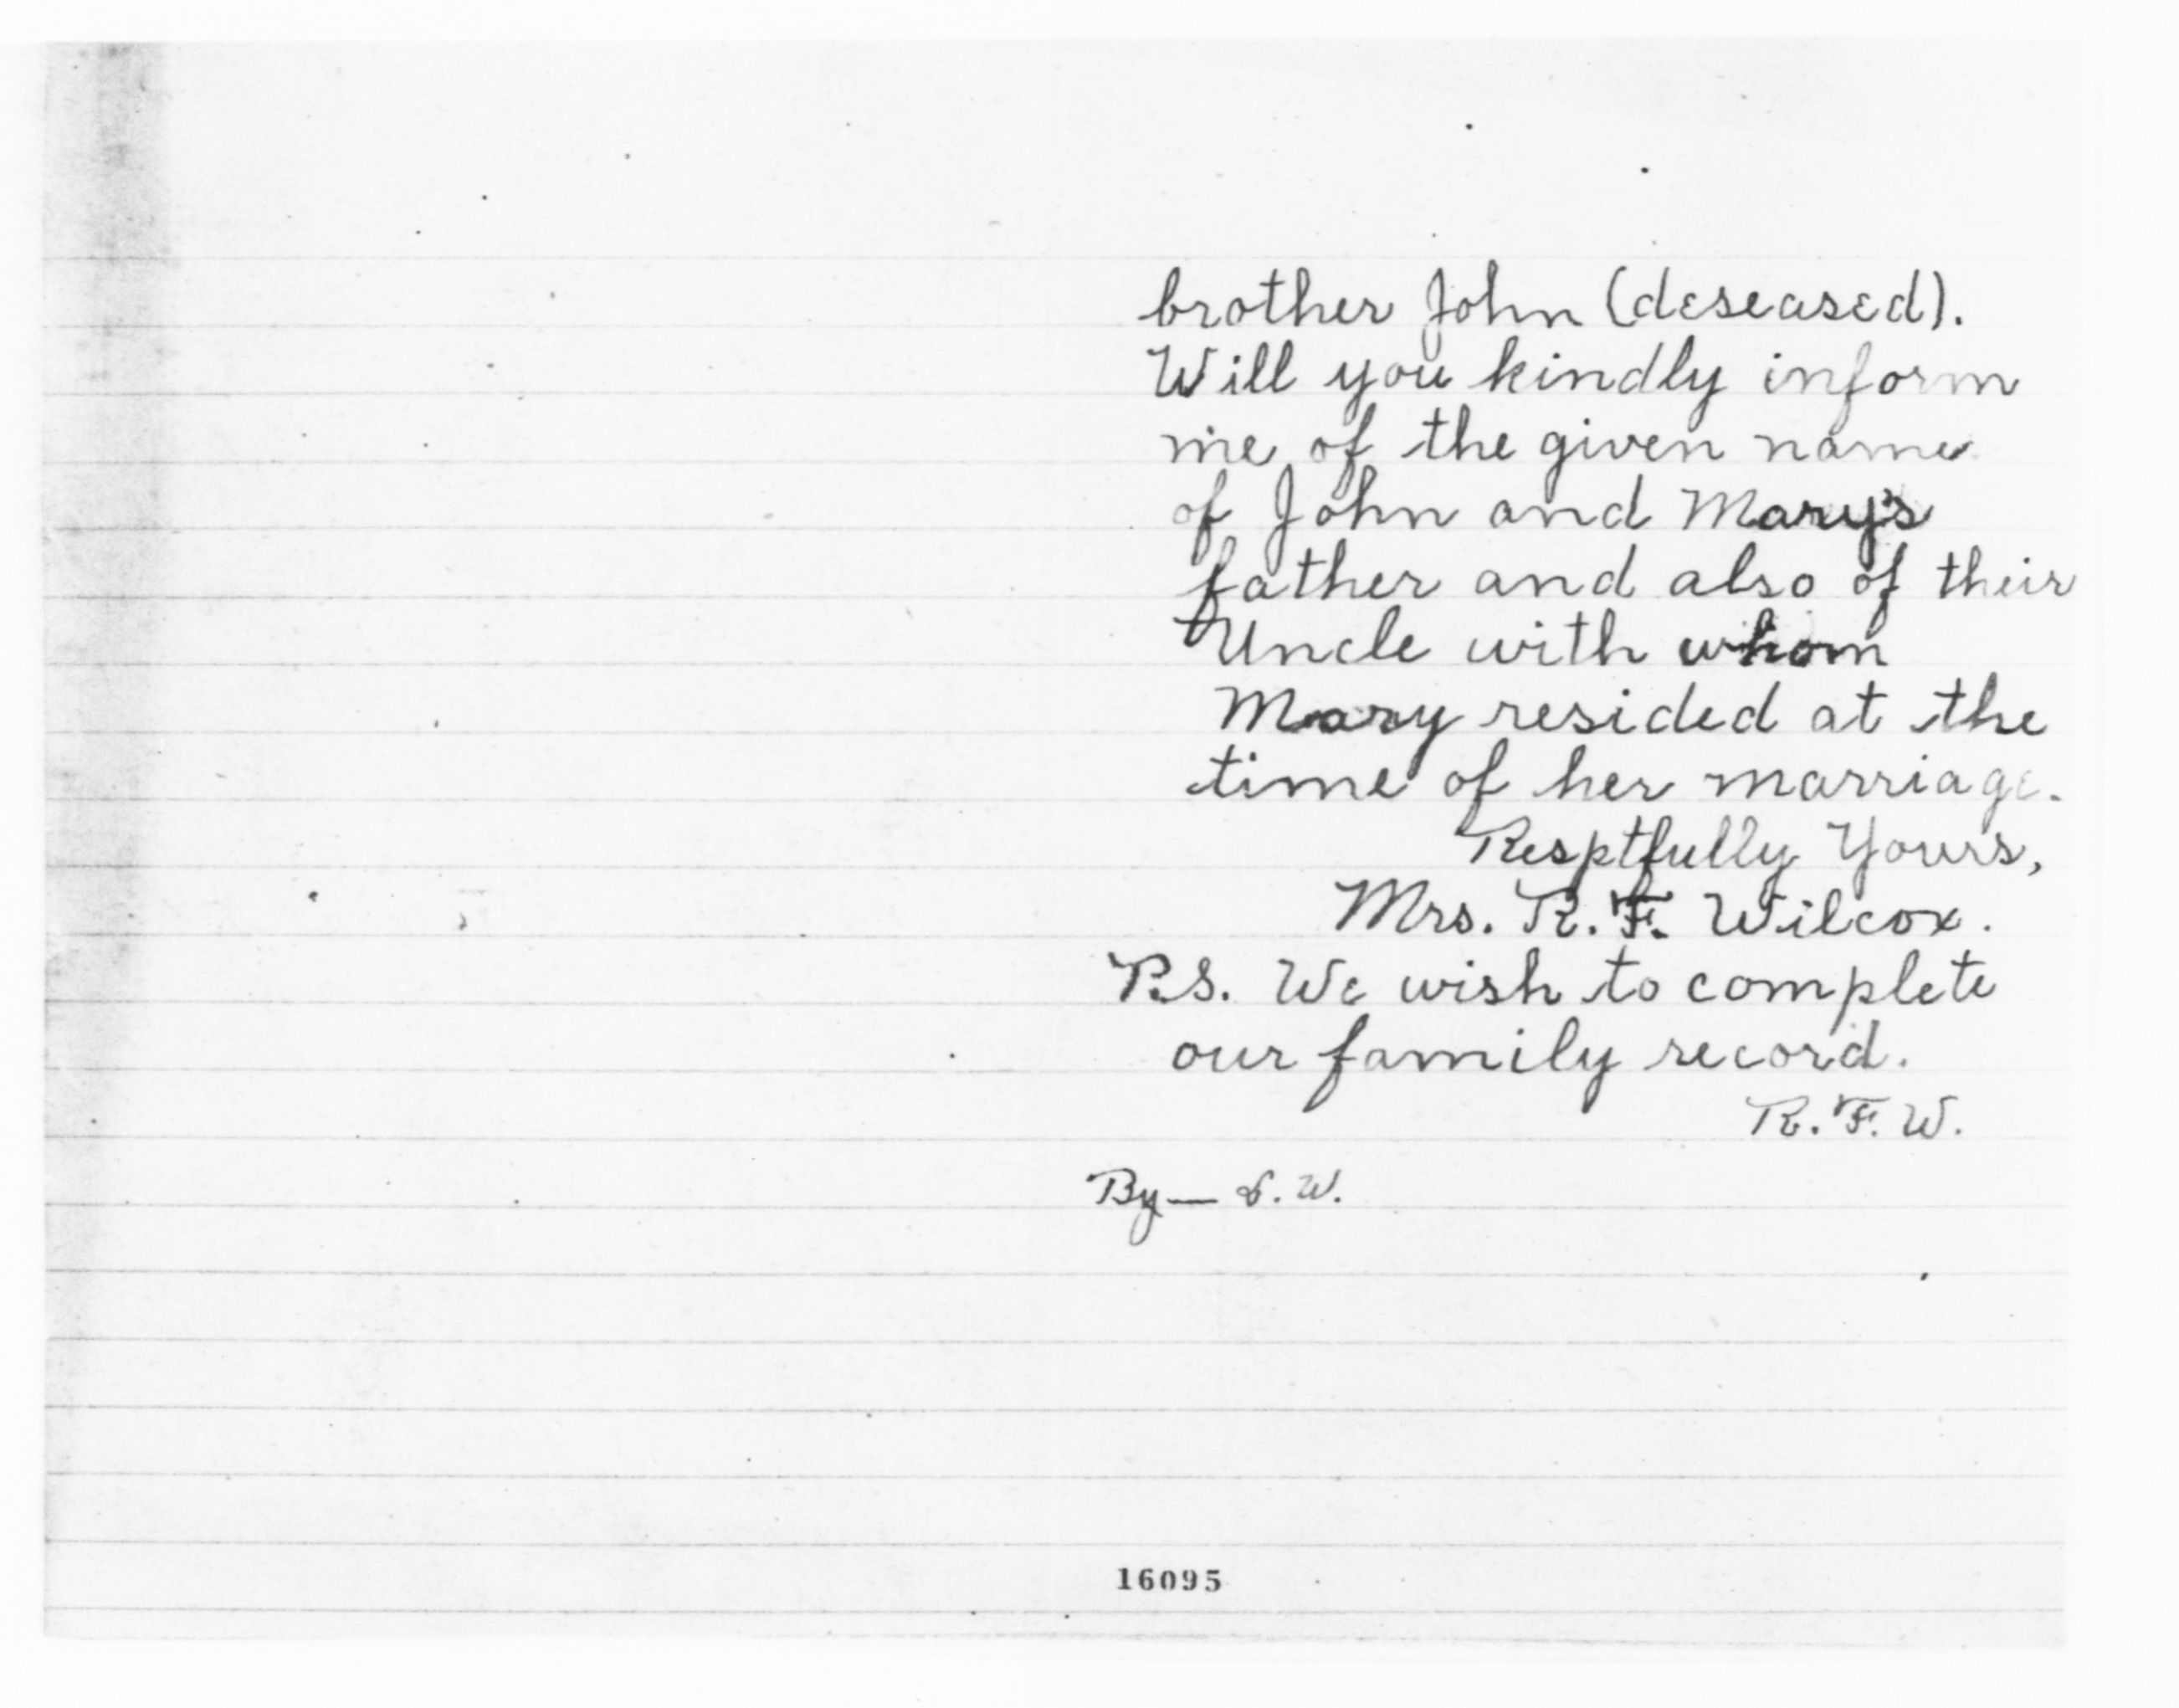 brother John (deseased).
Will you kindly inform
me of the given name
of John and Mary's
father and also of their
Uncle with whom
Mary resided at the
time of her marriage.
Resptfully Yours,
Mrs. R. F. Wilcox.
P.S. We wish to complete
our family record.
R. F. W.
By— S. W.
16095